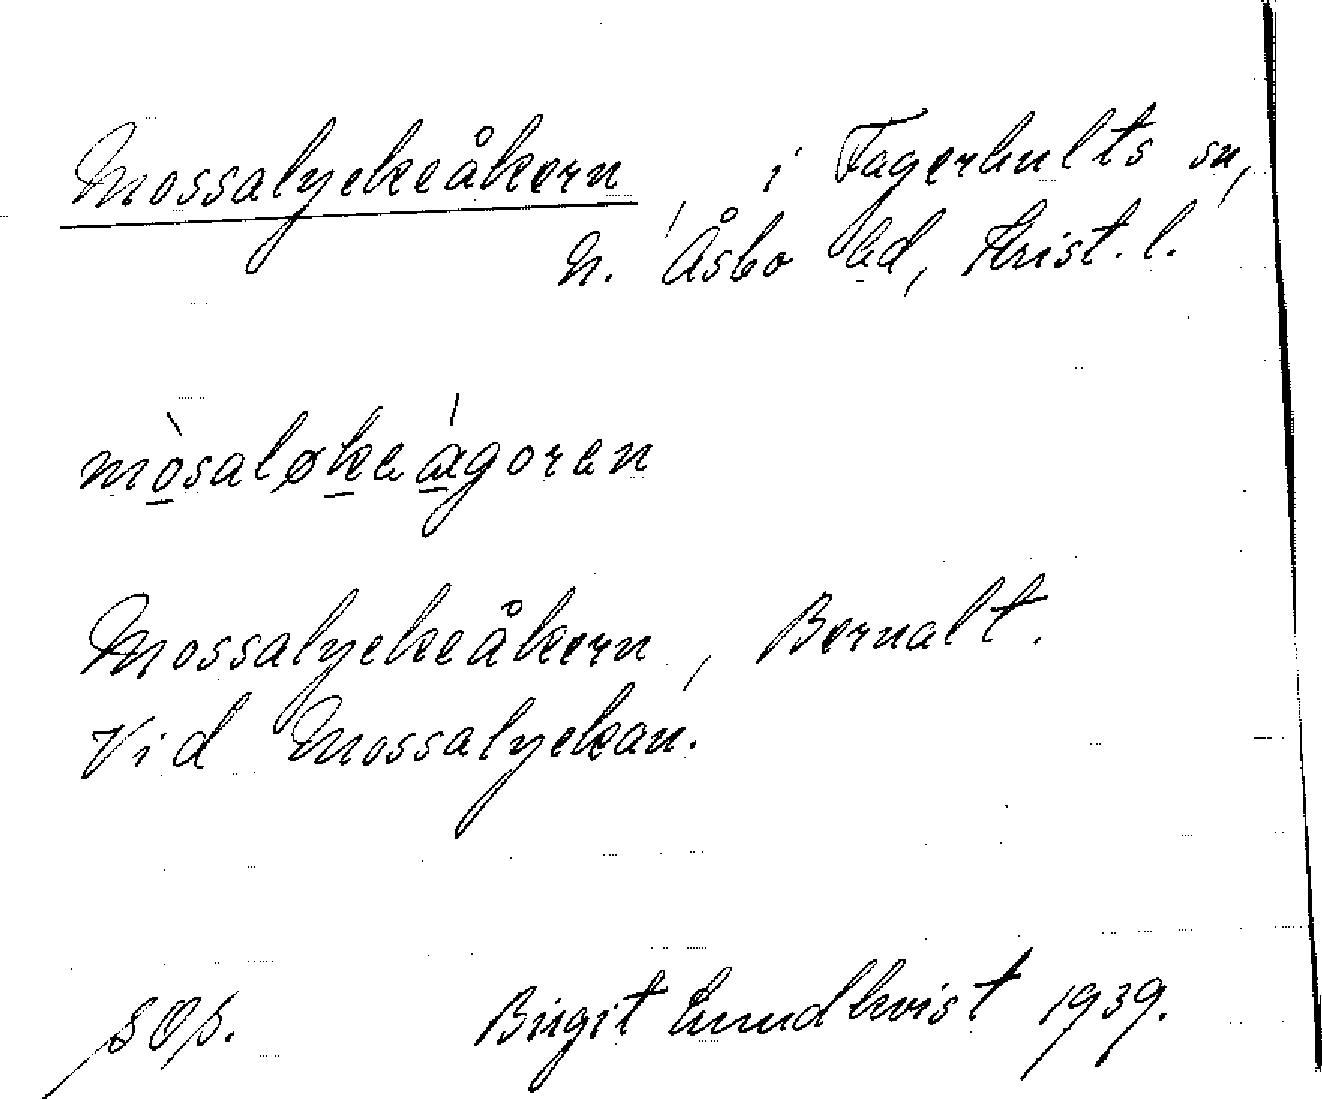 Mossalyckeåkern i Fagerhults sn,
N. Åsbo hd, Krist. l.
mòsaløkeágoren
Mossalyckeåkern, Bernalt.
Vid Mossalyckan.
Birgit Lundkvist 1939.